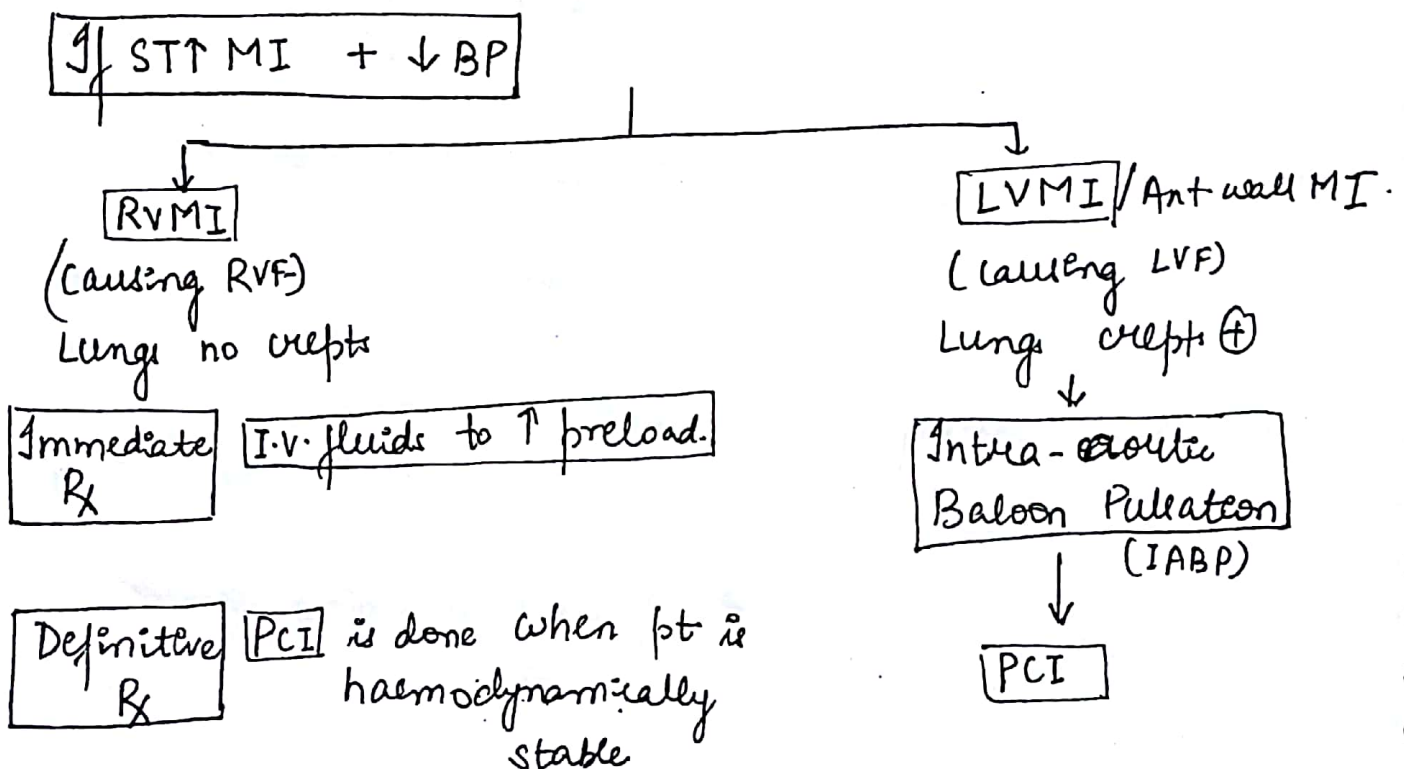 If ST↑ MI + ↓ BP
RVMI
(Causing RVF)
Lungs no crepts
Immediate Rx
I.V. fluids to ↑ preload.
Definitive Rx
PCI is done when pt is
haemodynamically
stable
LVMI / Ant wall MI.
(causing LVF)
Lungs crepts ⊕
Intra-aoutic
Baloon Pulsation
(IABP)
PCI